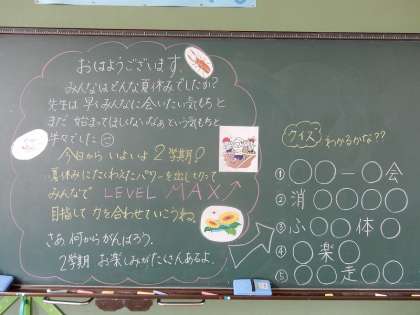 おはようございます。
みんなはどんな夏休みでしたか?
先生は早くみんなに会いたい気もちと
まだ始まってほしくないなぁという気もちと
半々でした
今日から いよいよ2学期!
夏休みにたくわえたパワーを出しきって
みんなで LEVEL MAX↗
目指して 力を合わせていこうね。
さあ 何からがんばろう。
2学期 お楽しみがたくさんあるよ。
クイズ わかるかな??
① ○○一○会
② 消○○○○
③ ふ○○体○
④ ○楽○
⑤ ○○走○○